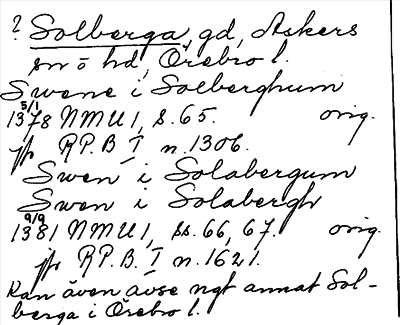 ? Solberga, gd, Askers
sn o hd, Örebro l.
Swene i Solberghum
5/1 1378 NMU 1, s. 65. orig.
jfr RP. B I n. 1306.
Swen i Solabergum
Swen i Solabergh
9/9 1381 NMU 1, ss. 66, 67. orig.
jfr RP. B. I n. 1621.
Kan även avse ngt annat Sol-
berga i Örebro l.